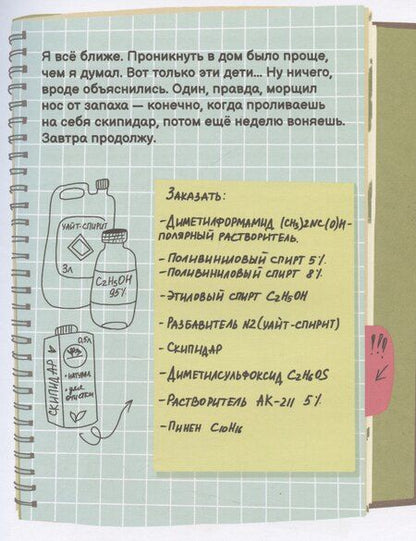 Я всё ближе. Проникнуть в дом было проще,
чем я думал. Вот только эти дети... Ну ничего,
вроде объяснились. Один, правда, морщил
нос от запаха — конечно, когда проливаешь
на себя скипидар, потом ещё неделю воняешь.
Завтра продолжу.
Заказать:
-Диметилформамид (CH3)2NC(O)H-
полярный растворитель.
-Поливиниловый спирт 5%
-Поливиниловый спирт 8%
-Этиловый спирт C2H5OH
-Разбавитель N2 (уайт-спирит)
-Скипидар
-Диметилсульфоксид C2H6OS
-Растворитель АК-211 5%
-Пинен C10H16
УАЙТ-СПИРИТ
3л
C2H5OH
95%
СКИПИДАР
0,5л
•для
очистки
!!!